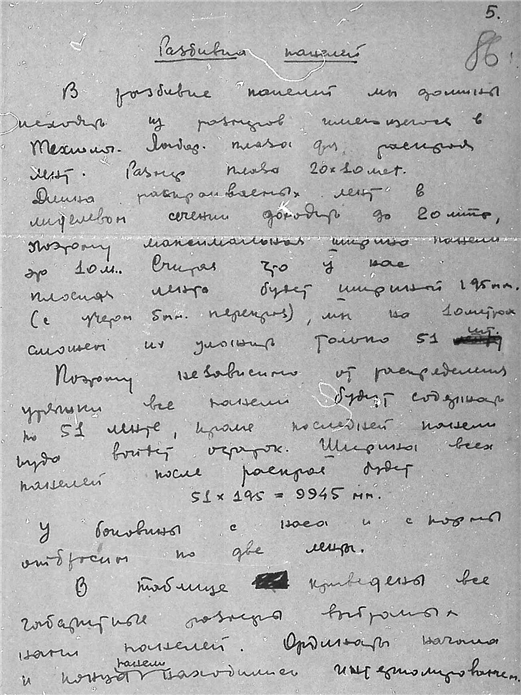 5.
86
Разбивка панелей
В разбивке панелей мы должны
исходить из размеров имеющегося в
Технолог. Лабор. плаза для раскроя
лент. Размер плаза 20х10 мет.
Длина раскраиваемых лент в
миделевом сечении доходит до 20 мтр,
поэтому максимальная ширина панели
10 м.. Считая что у нас
плоская лента будет шириной 195 мм.
(с учетом бок. перекроя), мы на 10 метрах
сможем их уложить только 51 шт.
Поэтому независимо от распределения
упряжки все панели будут содержать
по 51 ленте, кроме последней панели
куда войдет остаток. Ширина всех
панелей после раскроя будет
51 х 195 = 9945 мм.
У боковины с носа и с кормы
отбросим по две ленты.
В таблице приведены все
габаритные размеры выбранных
нами панелей. Ординаты начала
и конца панели находились интерполированием.